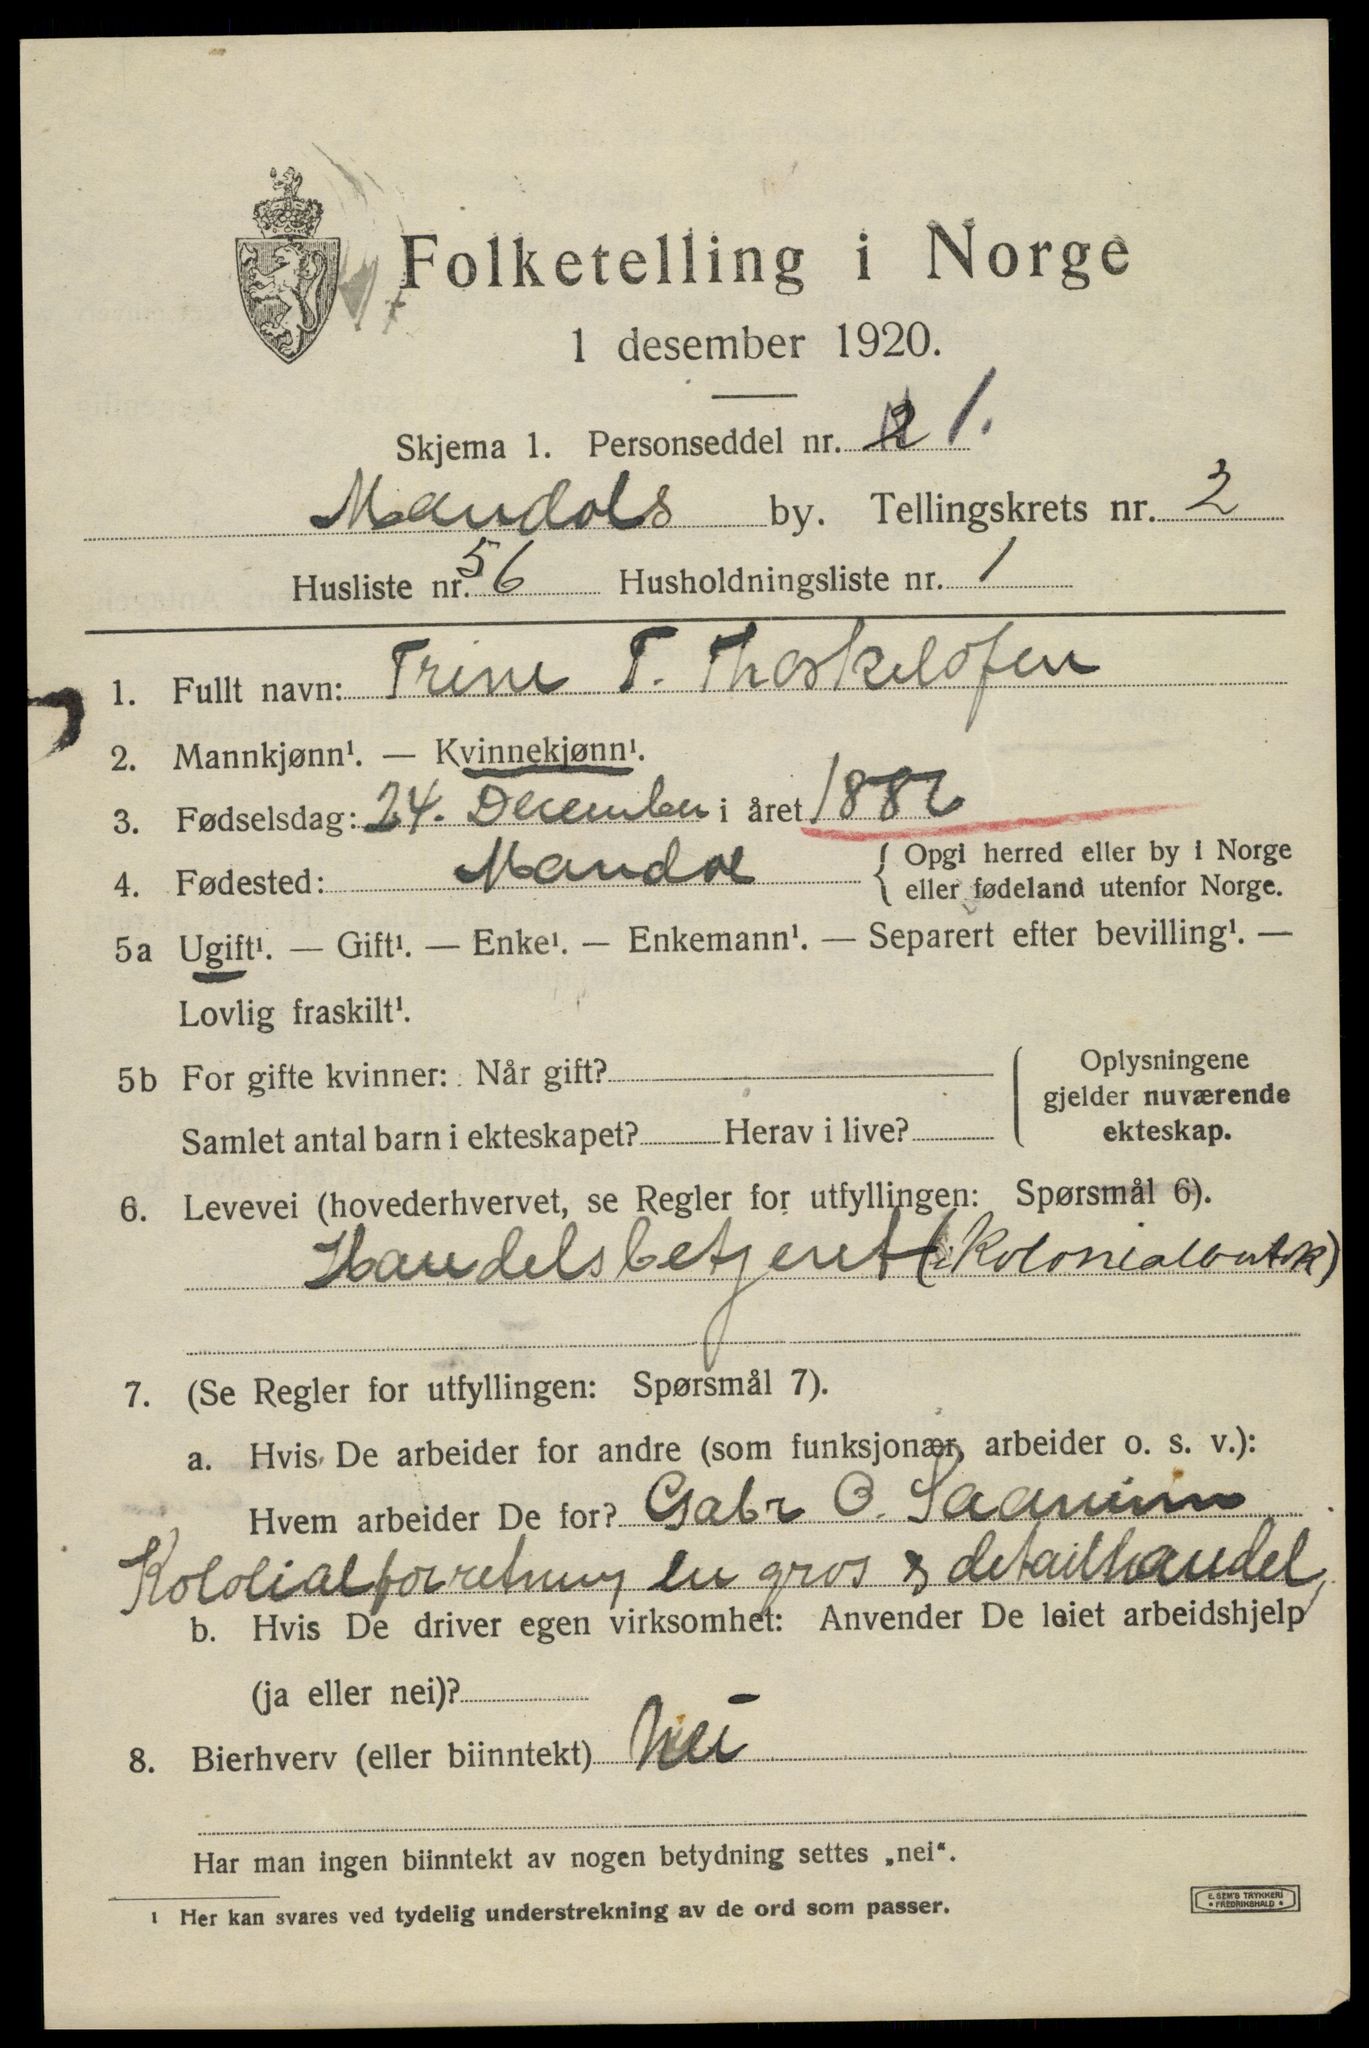 Folketelling i Norge
1 desember 1920.
Skjema 1. Personseddel nr. 1.
Mandals by. Tellingskrets nr. 2
Husliste nr. 56 Husholdningsliste nr. 1
1. Fullt navn: Trine T. Thorkelsfen
2. Mannkjønn¹. — Kvinnekjønn¹.
3. Fødselsdag: 24. December i året 1882
4. Fødested: Mandal { Opgi herred eller by i Norge
eller fødeland utenfor Norge.
5a Ugift¹. — Gift¹. — Enke¹. — Enkemann¹. — Separert efter bevilling¹. —
Lovlig fraskilt¹.
5b For gifte kvinner: Når gift? Oplysningene
gjelder nuværende
Samlet antal barn i ekteskapet? Herav i live? ekteskap.
6. Levevei (hovederhvervet, se Regler for utfyllingen: Spørsmål 6).
Handelsbetjent (i Kolonialbutik)
7. (Se Regler for utfyllingen: Spørsmål 7).
a. Hvis De arbeider for andre (som funksjonær, arbeider o. s. v.):
Hvem arbeider De for? Gabr O. Saanum
Kololialforretning en gros & detailhandel,
b. Hvis De driver egen virksomhet: Anvender De leiet arbeidshjelp
(ja eller nei)?
8. Bierhverv (eller biinntekt) Nei
Har man ingen biinntekt av nogen betydning settes „nei“.
¹ Her kan svares ved tydelig understrekning av de ord som passer.
E. SEM'S TRYKKERI
* FREDRIKSHALD *